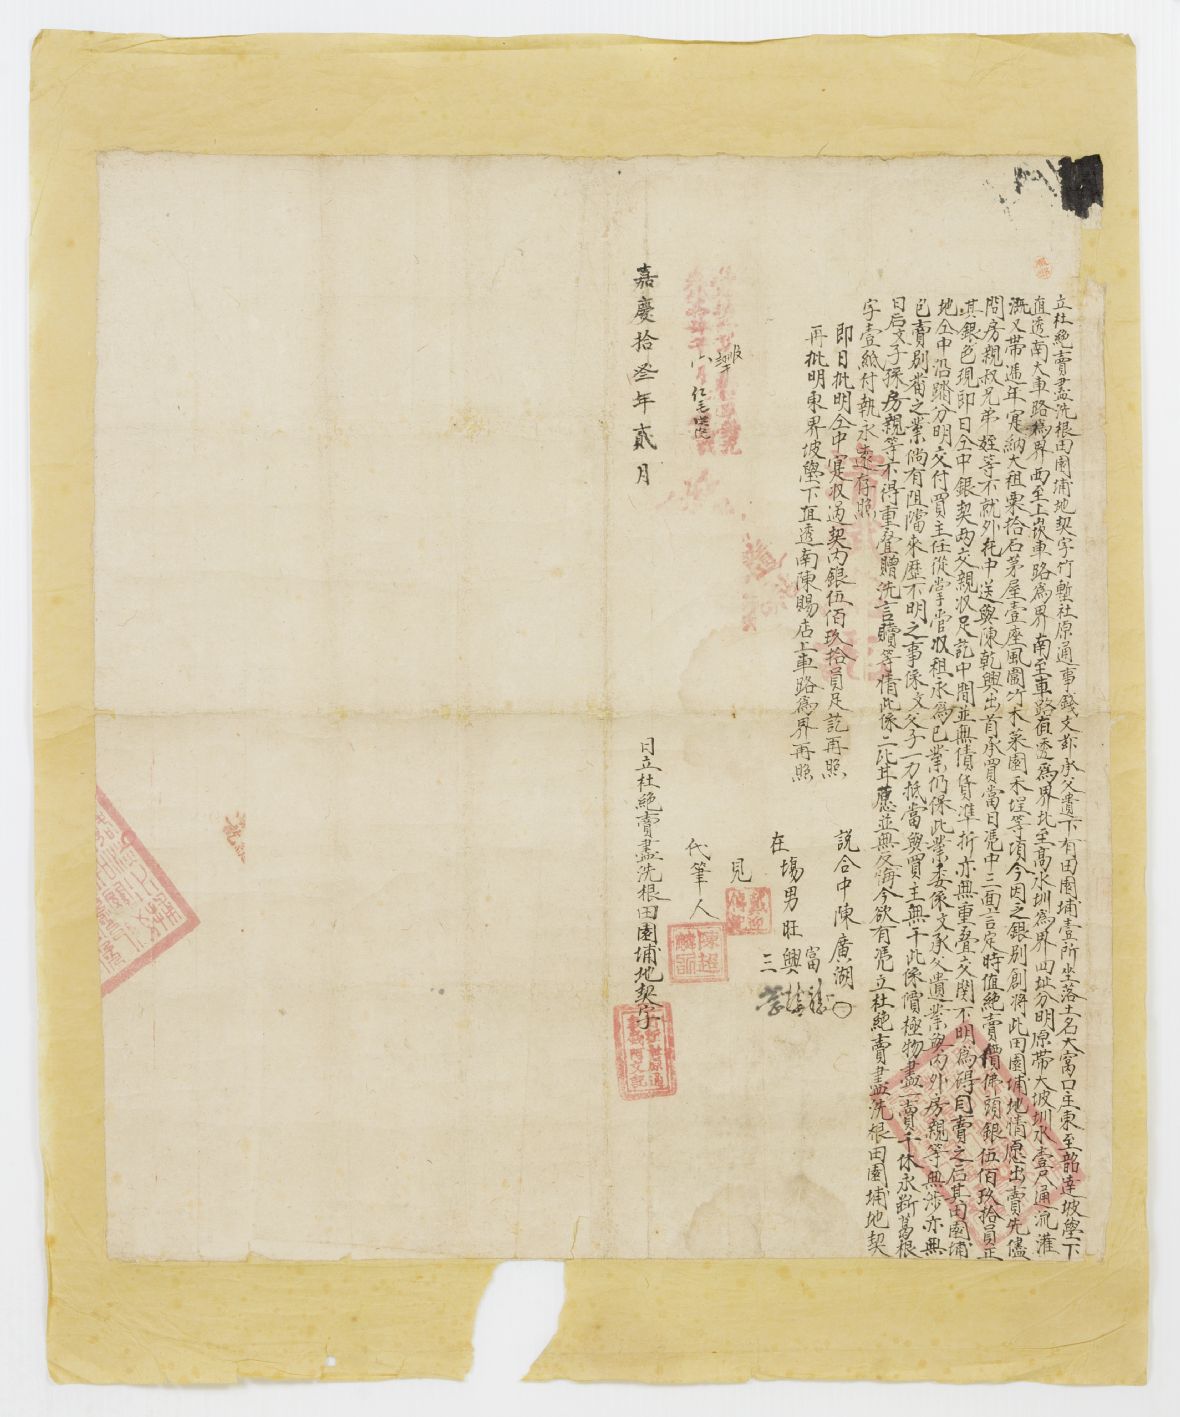 立杜絕賣盡洗根田園埔地契字竹塹社原通事錢文 承父遺下有田園埔壹所坐落土名大窩口庄東至韶達坡壆下
直透南大車路為界西至上崁車路為界南至車路直透為界北至高水圳為界四址分明原帶大坡圳水壹尺通流灌
溉又帶逓年寔納大租粟拾石茅屋壹座風圍竹木菜園禾埕等項今因乏銀別創將此田園埔地情愿出賣先儘
問房親叔兄弟姪等不就外托中送與陳乾興出首承買當日憑中三面言定時值絕賣價佛頭銀伍佰玖拾員正
其銀色現即日仝中銀契兩交親收足訖中間並無債貨準折亦無重叠交関不明為碍自賣之后其田園埔
地仝中沿踏分明交付買主任從掌管收租永為己業仍係此業委係文承父遺業與內外房親等無涉亦無
包賣別番之業倘有阻擋來歷不明之事係文父子一力抵當與買主無干此係價極物盡一賣千休永斷葛根
日后文子孫房親等不得重叠贈洗言贖等情此係二比甘愿並無反悔今欲有凭立杜絕賣盡洗根田園埔地契
字壹紙付執永遠存照
即日批明仝中寔收過契內銀伍佰玖拾員足訖再照
再批明東界坡壆下直透南陳賜店上車路為界再照
說合中陳廣湖
在塲男旺興富三
見
代筆人
陳超麟記
嘉慶拾叁年貳月 日立杜絕賣盡洗根田園埔地契字